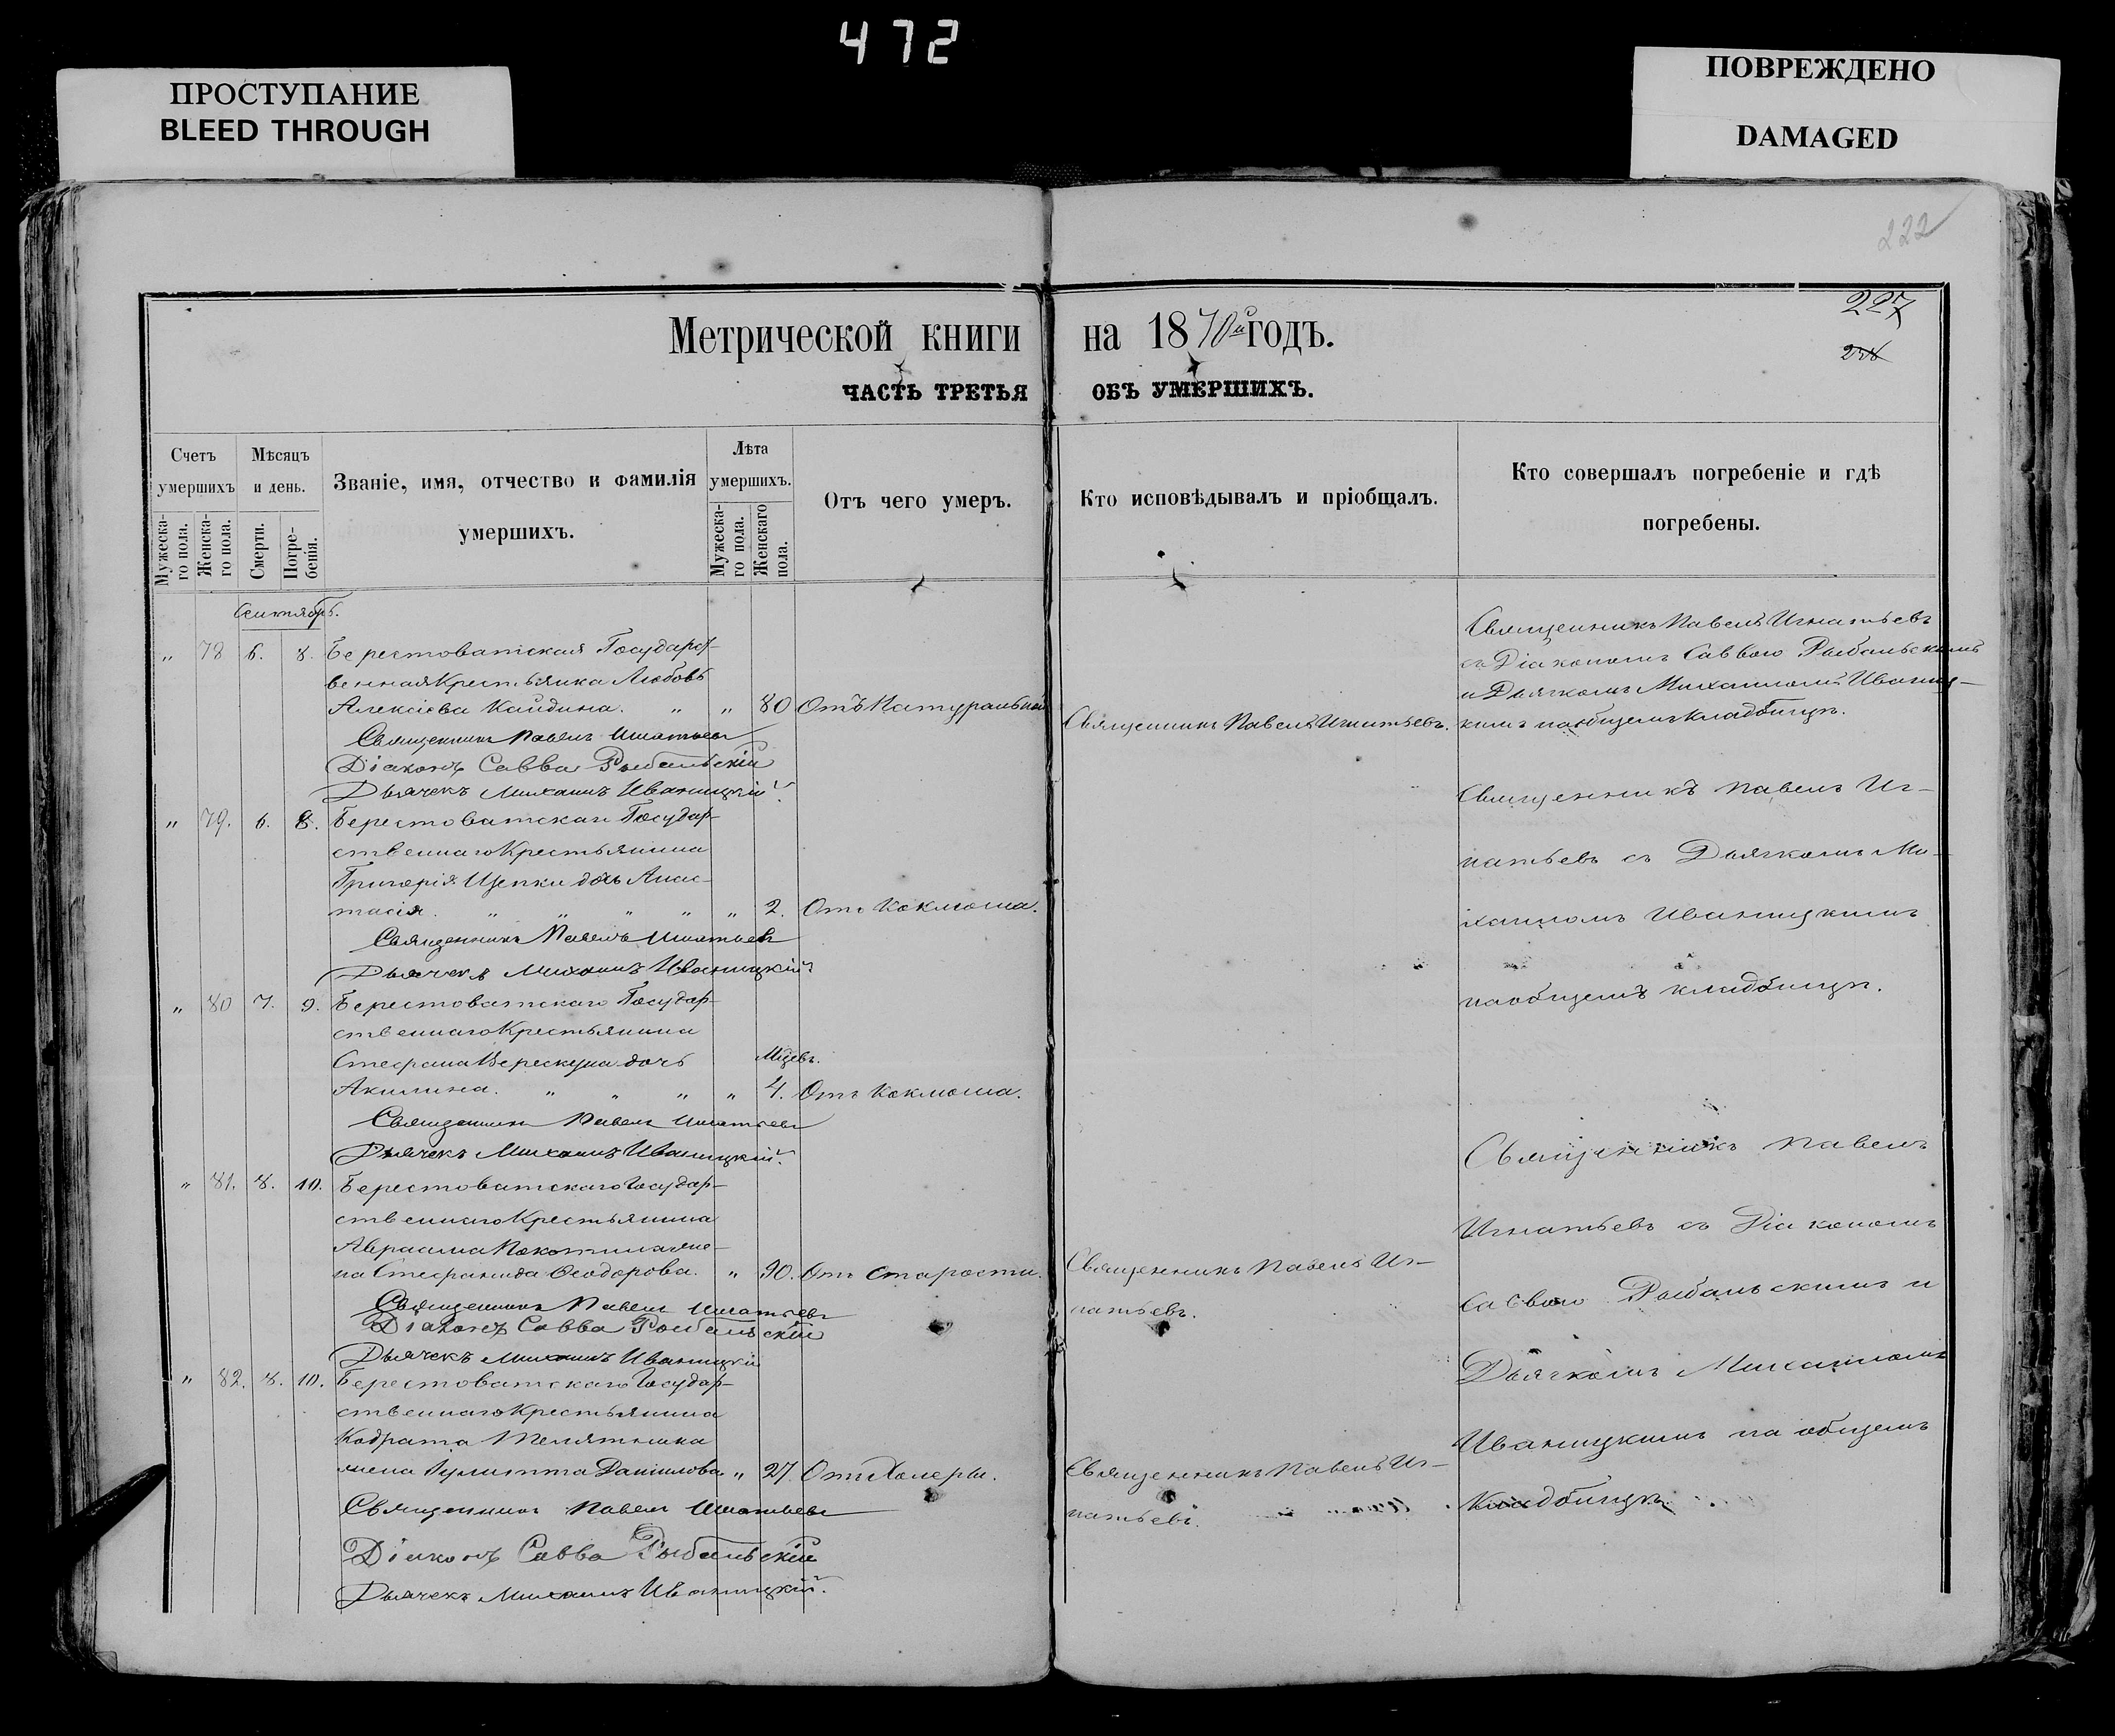 472
ПРОСТУПАНИЕ
BLEED THROUGH
ПОВРЕЖДЕНО
DAMAGED
222
227
Метрической книги на 1870й годъ.
ЧАСТЬ ТРЕТЬЯ ОБЪ УМЕРШИХЪ.
Счетъ умершихъ
Мужеска-го пола.
Женска-го пола.
Мѣсяцъ и день.
Смерти.
Погре-бенія.
Званіе, имя, отчество и фамилія
умершихъ.
Лѣта умершихъ.
Мужеска-го пола.
Женскаго пола.
Отъ чего умеръ.
Кто исповѣдывалъ и пріобщалъ.
Кто совершалъ погребеніе и гдѣ
погребены.
Сентябрь.
„ 78 6. 8. Берестоватская Государст-
венная Крестьянка Любовь
Алексіева Кайдина. „ „ 80 Отъ Натуральной
Священникъ Павелъ Игнатьевъ.
Священникъ Павелъ Игнатьевъ
съ Діакономъ Саввою Рыбальскимъ
и Дьячкомъ Михаиломъ Иваниц-
кимъ на общемъ кладбищѣ.
Священникъ Павелъ Игнатьевъ
Діаконъ Савва Рыбальскій
Дьячекъ Михаилъ Иваницкій.
„ 79. 6. 8. Берестоватскаго Государ-
ственнаго Крестьянина
Григорія Щепки дочь Анас-
тасія. „ „ „ „ „ 2. Отъ Коклюша.
Священникъ Павелъ Игнатьевъ
Дьячекъ Михаилъ Иваницкій.
Священникъ Павелъ Иг-
натьевъ съ Дьячкомъ Ми-
хаиломъ Иваницкимъ
на общемъ кладбищѣ.
„ 80 7. 9. Берестоватскаго Государ-
ственнаго Крестьянина
Стефана Верескуна дочь Мцевъ.
Акилина. „ „ „ „ 4. Отъ Коклюша.
Священникъ Павелъ Игнатьевъ
Дьячекъ Михаилъ Иваницкій.
„ 81. 8. 10. Берестоватскаго Государ-
ственнаго Крестьянина
Авраама Покотила же-
на Стефанида Ѳеодорова. „ 90. Отъ Старости.
Священникъ Павелъ Иг-
натьевъ.
Священникъ Павелъ Игнатьевъ
Діаконъ Савва Рыбальскій
Дьячекъ Михаилъ Иваницкій
Священникъ Павелъ
Игнатьевъ съ Діакономъ
Саввою Рыбальскимъ и
Дьячкомъ Михаиломъ
Иваницкимъ на общемъ
Кладбищѣ.
„ 82. 8. 10. Берестоватскаго Государ-
ственнаго Крестьянина
Кодрата Телятника
жена Іулитта Даніилова „ 27. Отъ Холеры.
Священникъ Павелъ Иг-
натьевъ.
Священникъ Павелъ Игнатьевъ
Діаконъ Савва Рыбальскій
Дьячекъ Михаилъ Иваницкій.